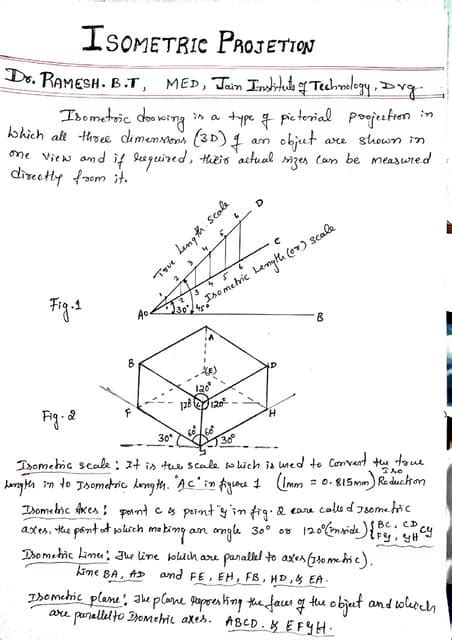 ISOMETRIC PROJETION
Dr. RAMESH. B.T, MED, Jain Institute of Technology, Dvg.
Isometric drowing is a type of pictorial projection in
which all three dimensions (3D) of an object are shown in
one view and if required, their actual sizes can be measured
directly from it.
True Length Scale D
1 2 3 4 5 6
C
Isometric Length (or) Scale
1 2 3 4 5 6
Fig.1 A 30° 45° B
A
B (E) D
120°
120° C 120°
F H
Fig-2
30° 60° 60° 30°
G
Isometric scale: It is the scale which is used to convert the true
length in to Isometric length. "AC" in figure 1 (1mm = 0.815mm) Iso Reduction
Isometric Axes: point c & point 'y' in fig-2 are called Isometric
axes, the point at which making an angle 30° or 120° (inside) {BC, CD, CY
FY, YH
Isometric Lines: The line which are parallel to axes (Isometric).
Line BA, AD and FE, EH, FB, HD, & EA.
Isometric plane: The plane representing the faces of the object and which
are parallel to Isometric axes. ABCD. & EFGH.